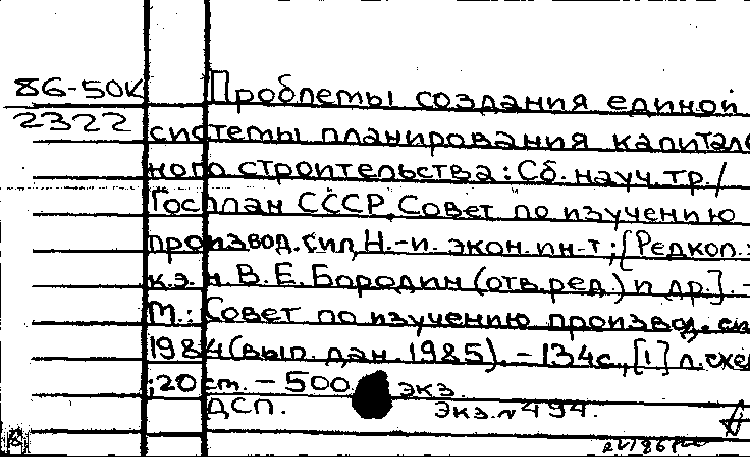 86-50К
2322
Проблемы создания единой
системы планирования капиталь
ного строительства: Сб. науч. тр. /
Госплан СССР, Совет по изучению
производ. сил, Н.-и. экон. ин-т; [Редкол.:
к.э.н. В.Е. Бородин (отв. ред.) и др.]. -
М.: Совет по изучению производ. си
1984 (вып. дан. 1985). - 134с., [1] л. схе
; 20 см. - 500 экз.
ДСП. Экз. № 494.